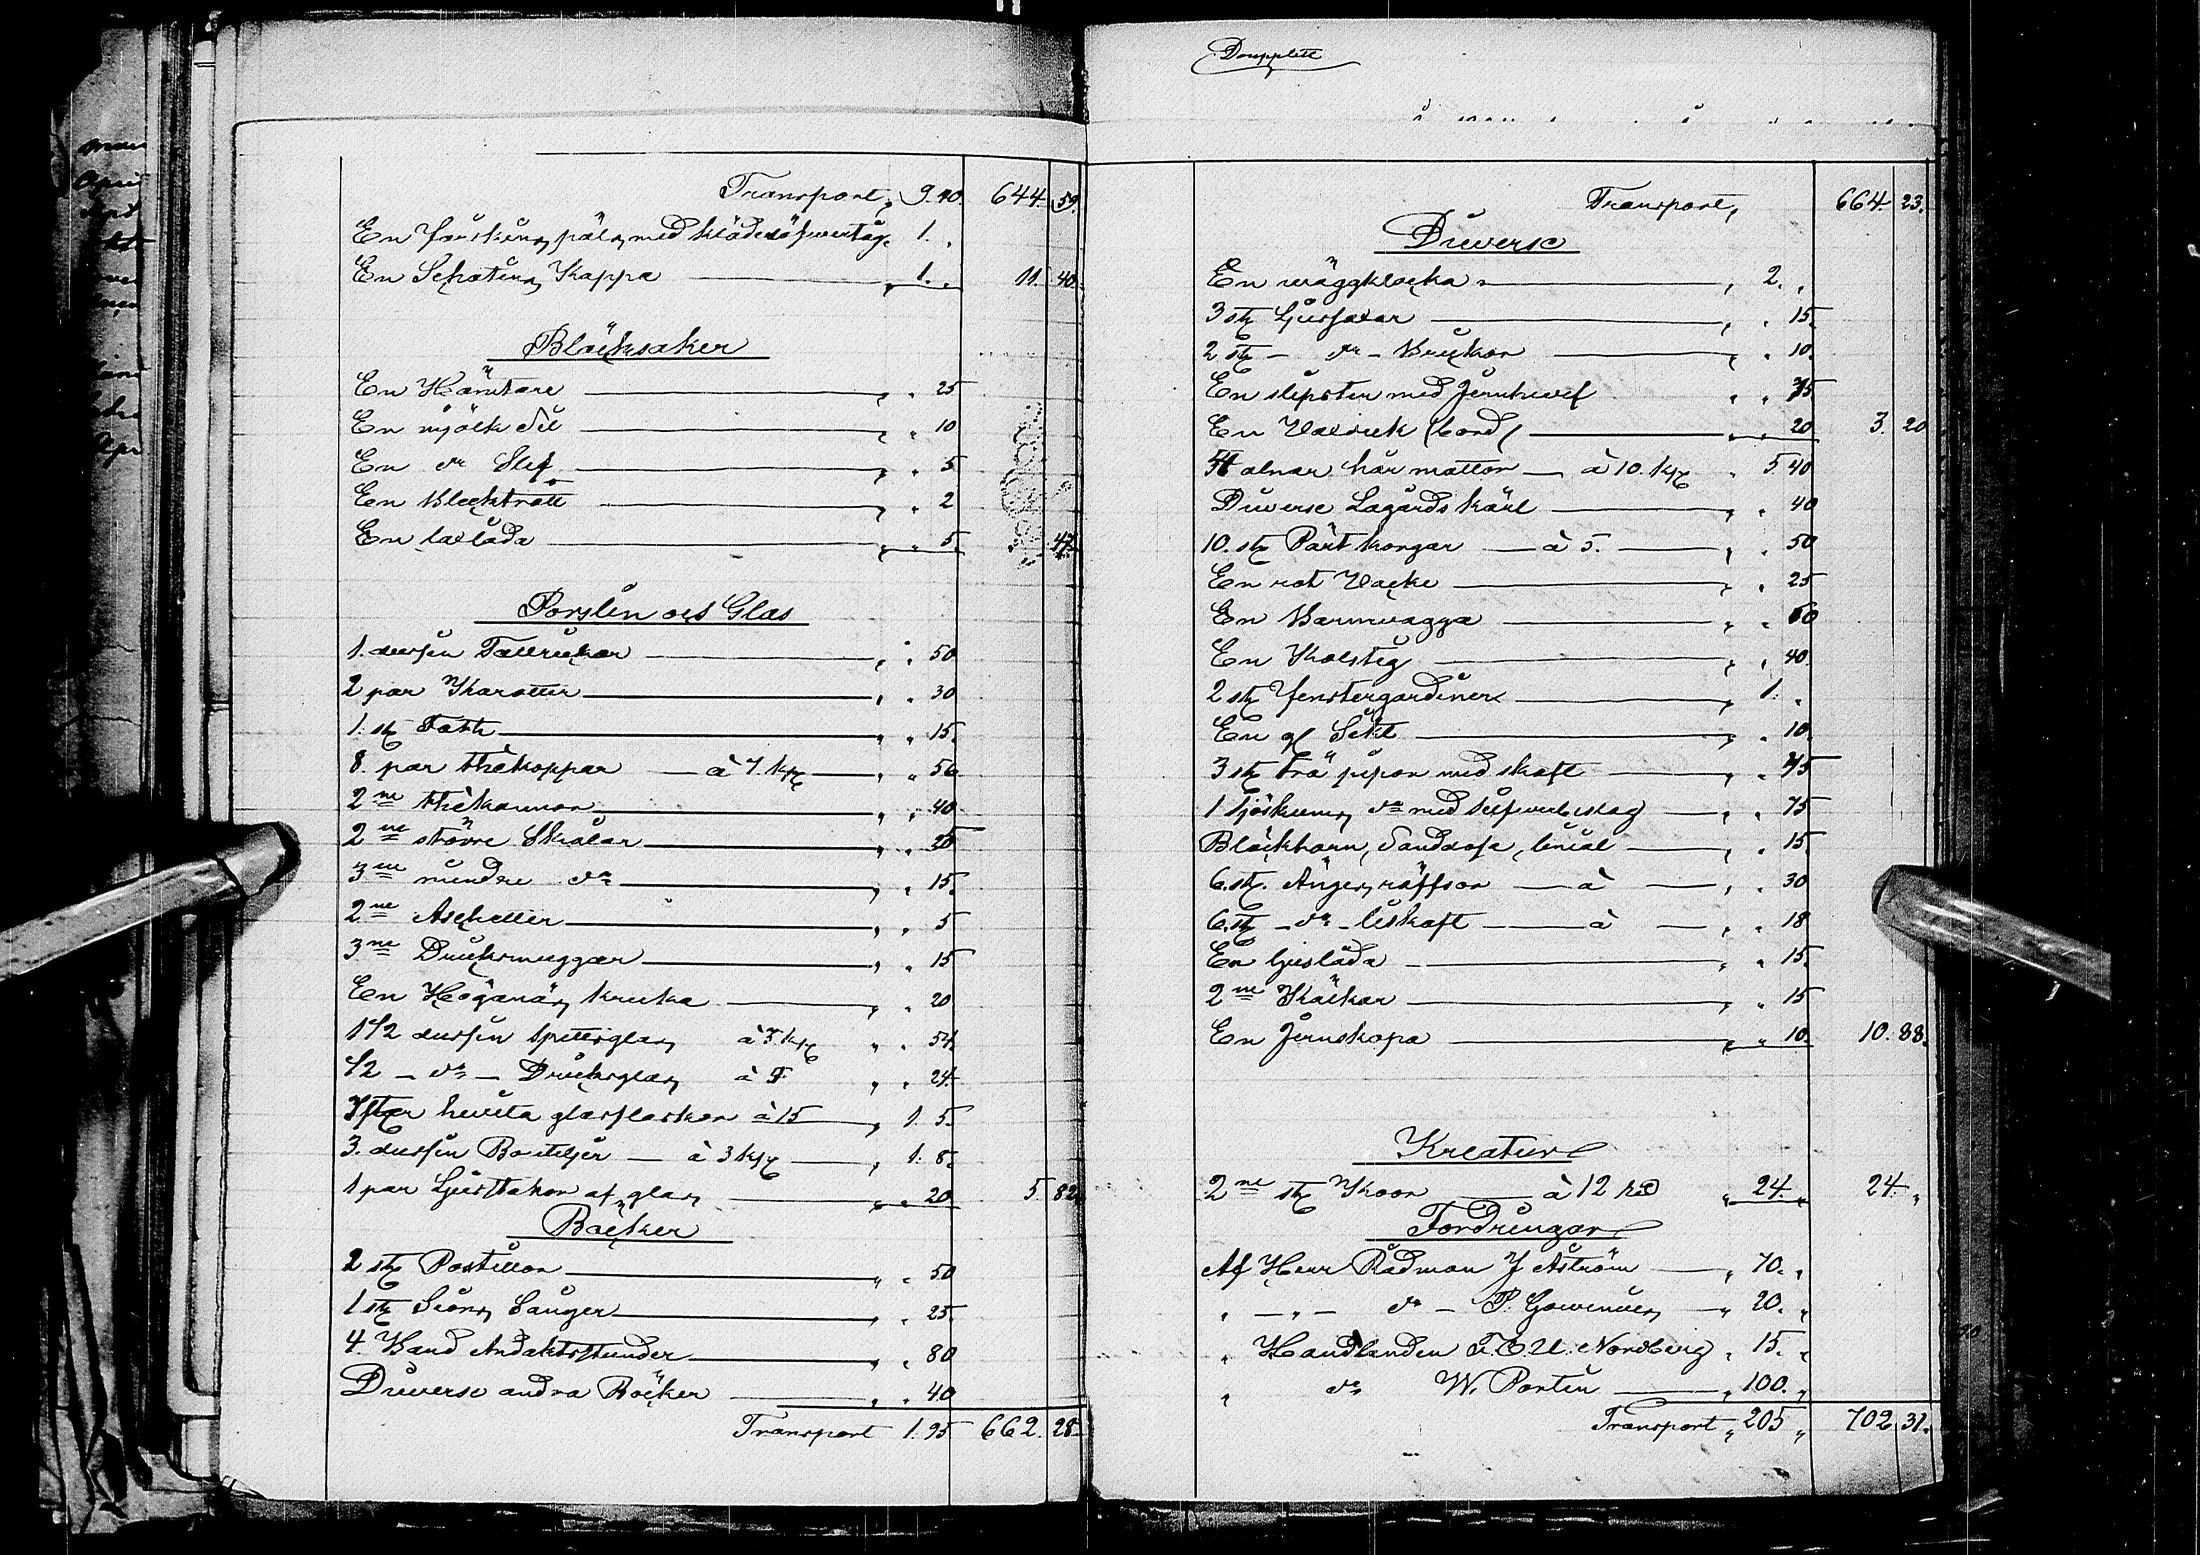 Transport, 9.40. 644. 59.
En fårskins päls med klädesöfvertåg. 1. „
En Schatins Kappa „ 1. „ 11. 40.
Bläcksaker
En Hämtare „ „ 25
En mjölk Sil „ „ 10
En do Slef „ „ 5
En Blecktratt „ „ 2
En laslåda „ „ 5 47.
Porslin och Glas
1. dussin Tallrickar „ „ 50
2 par Karotter „ „ 30
1. st Fath „ „ 15.
8. par thèkoppar à 7. kpk „ „ 56
2ne thèkannor „ „ 40
2ne större Skålar „ „ 25
3ne mindre do „ „ 15.
2ne Aschetter „ „ 5
3ne Dricksmuggar „ „ 15
En Höganäs kruka „ „ 20
1 1/2 dussin spetsglas à 3 kpk „ „ 54.
1/2 – do – Dricksglas à 4 „ „ 24.
7 ster hvita glasflaskor à 15 „ 1. 5.
3. dussin Bouteljer à 3 kpk „ 1. 8.
1 par Ljusstakar af glas „ „ 20 5 82.
Böcker
2 st Postillor „ „ 50
1 st Sions Sånger „ „ 25.
4. Band Andaktsstunder „ „ 80
Diverse andra Böcker „ „ 40
Transport 1. 95 662. 28.
Doupplett
Transport, 664. 23.
Diverse
En väggklocka „ 2. „
3 st Ljussaxar „ „ 15.
2 st – do – Brickor „ „ 10.
En slipsten med Jernvef „ „ 75
En Valduk (bord) „ „ 20 3. 20
54 alnar hår mattor à 10. kpk „ 5 40
Diverse Lagårds kärl „ „ 40
10. st Pärt korgar à 5. „ „ 50
En rot Vacke „ „ 25
En Barnvagga „ „ 60
En Kälstig „ „ 40.
2 st fenstergardiner „ 1. „
En gl Sikt „ „ 10.
3 st trä pipor med skaft „ „ 75
1 sjöskums do med silfverbeslag „ „ 75
Bläckhorn, Sanddosa, linial „ „ 15.
6. st. Ängesräffsor à „ „ 30
6. st – do – liskaft à „ „ 18
En ljuslåda „ „ 15.
2ne Käckar „ „ 15
En Jernskopa „ „ 10. 10. 88.
Kreatur
2ne st Koor à 12 rub „ 24. „ 24. „
Fordringar
Af Herr Rådman J Åström „ 70. „
„ – „ – do – P. Gowenius „ 20. „
„ Handlanden F. E. U. Nordberg „ 15. „
„ do W. Portin „ 100. „
Transport „ 205 „ 702. 31.